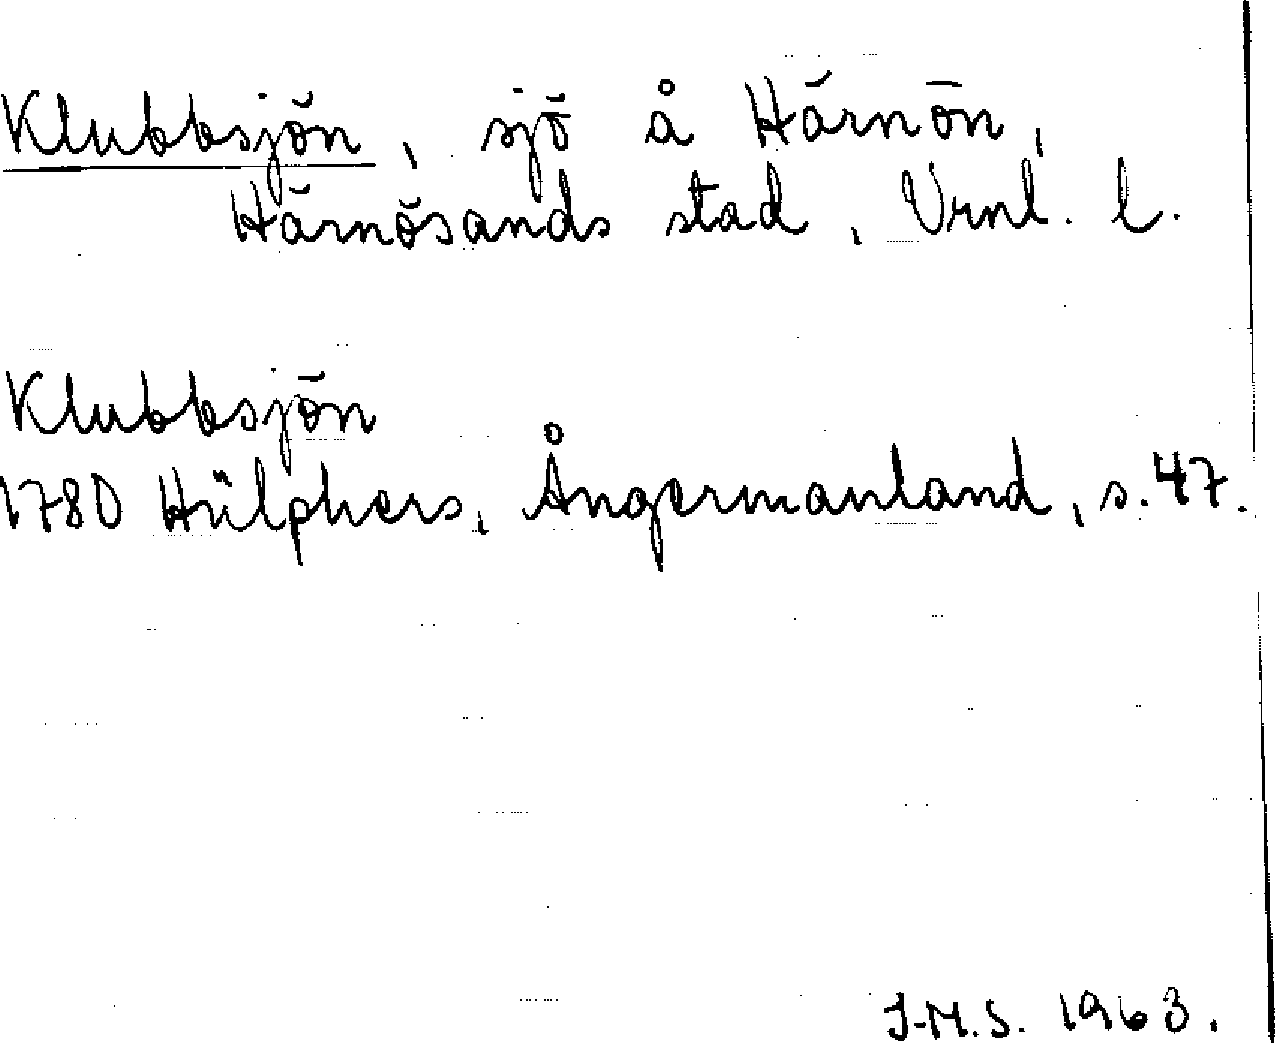 Klubbsjön, sjö å Härnön,
Härnösands stad, Vrnl. l.
Klubbsjön
1780 Hülphers, Ångermanland, s. 47.
J-M.S. 1963.